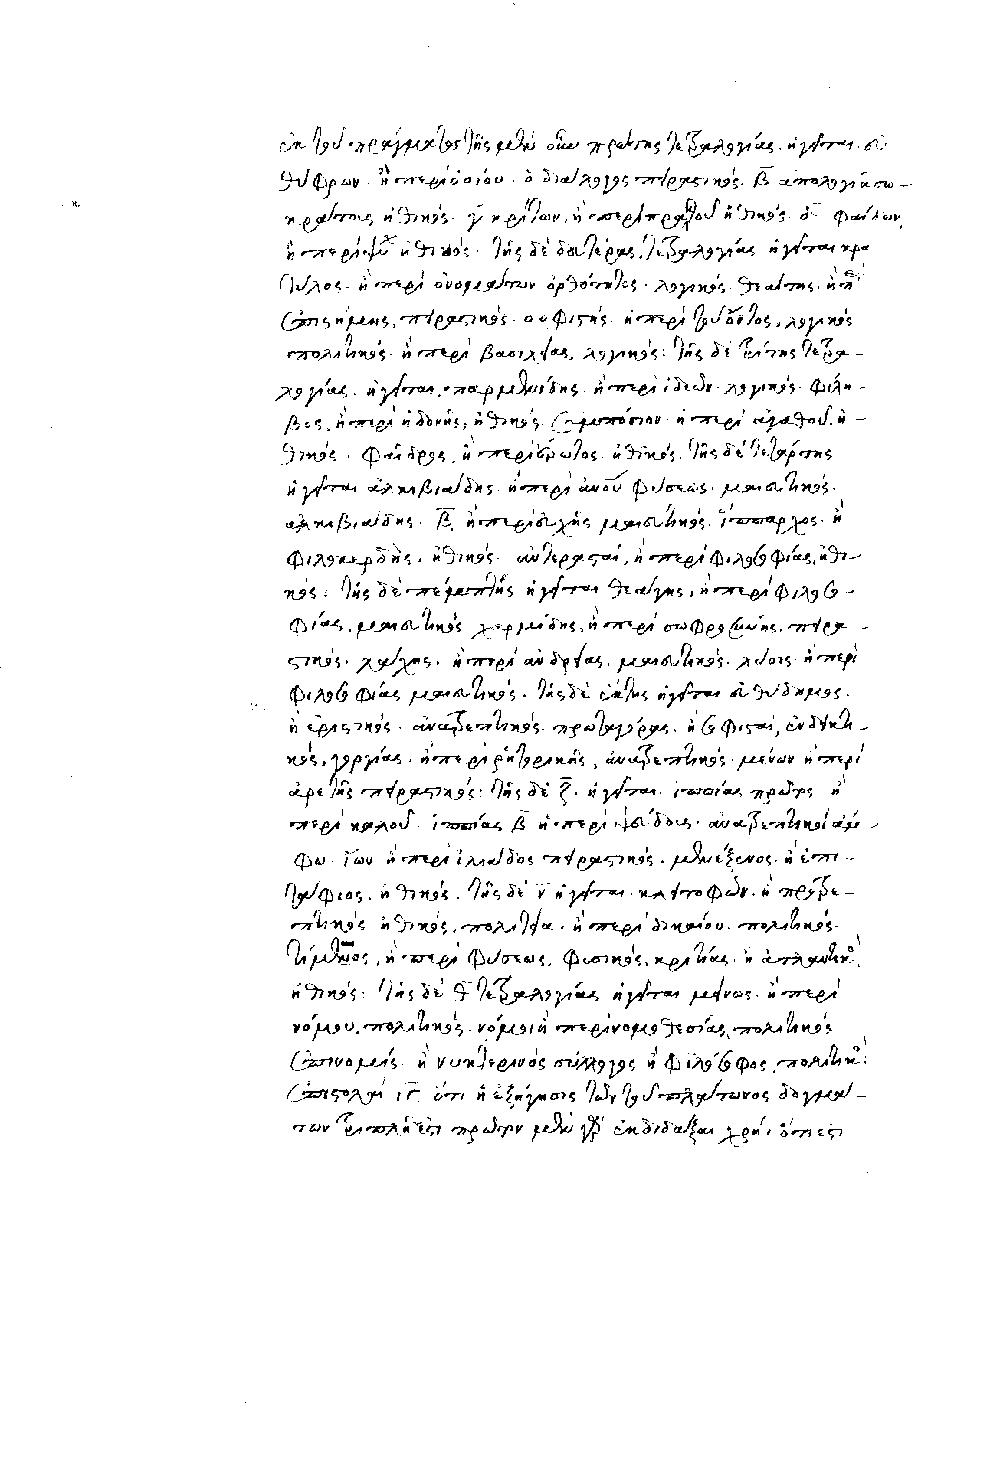 ἐκ τοῦ πράγματος τῆς μὲν οὖν πρώτης τετραλογίας ἡγεῖται εὐ
θύφρων ἢ περὶ ὁσίου ὁ διάλογος πειραστικός β̅ ἀπολογία σω-
κράτους ἠθικός γ̅ κρίτων ἢ περὶ πρακτοῦ ἠθικός δ̅ φαίδων
ἢ περὶ ψυχ ἠθικός τῆς δὲ δευτέρας τετραλογίας ἡγεῖται κρα
τύλος ἢ περὶ ὀνομάτων ὀρθότητος λογικός θεαίτης ἢ π
ἐπιστήμης πειραστικός σοφιστής ἢ περὶ τοῦ ὄντος λογικός
πολιτικός ἢ περὶ βασιλείας λογικός τῆς δὲ τρίτης τετρα-
λογίας ἡγεῖται παρμενίδης ἢ περὶ ἰδεῶν λογικός φίλη-
βος ἢ περὶ ἡδονῆς ἠθικός συμπόσιον ἢ περὶ ἀγαθοῦ ἠ-
θικός φαῖδρος ἢ περὶ ἔρωτος ἠθικός τῆς δὲ τετάρτης
ἡγεῖται ἀλκιβιάδης ἢ περὶ ἀνου φύσεως μαιευτικός
ἀλκιβιάδης β̅ ἢ περὶ εὐχῆς μαιευτικός ἵππαρχος ἢ
φιλοκερδὴς ἠθικός ἀντερασταί ἢ περὶ φιλοσοφίας ἠθι-
κός τῆς δὲ πέμπτης ἡγεῖται θεάγης ἢ περὶ φιλοσο-
φίας μαιευτικός χαρμίδης ἢ περὶ σωφροσύνης πειρα-
στικός λάχης ἢ περὶ ἀνδρείας μαιευτικός λύσις ἢ περὶ
φιλοσοφίας μαιευτικός τῆς δὲ ἕκτης ἡγεῖται εὐθύδημος
ἢ ἐριστικός ἀνατρεπτικός πρωταγόρας ἢ σοφισταί ἐνδεικτι-
κός γοργίας ἢ περὶ ῥητορικῆς ἀνατρεπτικός μένων ἢ περὶ
ἀρετῆς πειραστικός τῆς δὲ ζ̅ ἡγεῖται ἱππίας πρῶτος ἢ
περὶ καλοῦ ἱππίας β̅ ἢ περὶ ψεύδους ἀνατρεπτικοὶ ἄμ-
φω ἴων ἢ περὶ ἰλιάδος πειραστικός μενέξενος ἢ ἐπι-
τάφιος ἠθικός τῆς δὲ η̅ ἡγεῖται κλειτοφῶν ἢ προτρε-
πτικός ἠθικός πολιτεία ἢ περὶ δικαίου πολιτικός
τίμαιος ἢ περὶ φύσεως φυσικός κριτίας ἢ ἀτλαντικ
ἠθικός τῆς δὲ θ̅ τετραλογίας ἡγεῖται μίνως ἢ περὶ
νόμου πολιτικός νόμοι ἢ περὶ νομοθεσίας πολιτικός
ἐπινομίς ἢ νυκτερινὸς σύλλογος ἢ φιλόσοφος πολιτικ
ἐπιστολαὶ ιγ̅ ἔστι ἡ ἐξήγησις τῶν τοῦ πλάτωνος δογμά-
των τριπλῆ ἐστι πρῶτον μὲν γὰρ ἐκδιδάξαι χρὴ ὅπερ ἐστι